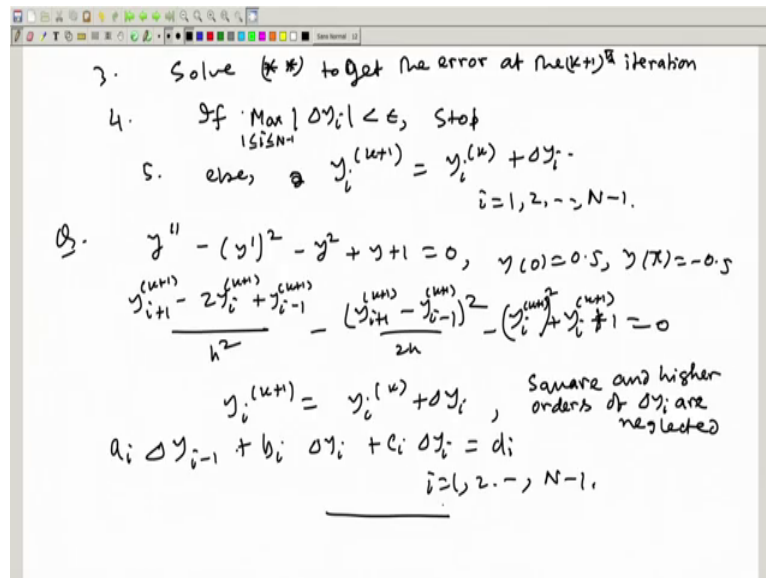 Sans Normal 12
3. Solve (**) to get the error at the (k+1)th iteration
4. If Max |Δy_i| < ε, Stop
1≤i≤N-1
5. else, y_i^(k+1) = y_i^(k) + Δy_i.
i=1, 2, --, N-1.
Q. y'' - (y')^2 - y^2 + y + 1 = 0, y(0)=0.5, y(π)=-0.5
(y_{i+1}^(k+1) - 2y_i^(k+1) + y_{i-1}^(k+1))/h^2 - (y_{i+1}^(k+1) - y_{i-1}^(k+1))^2/2h - (y_i^(k+1))^2 + y_i^(k+1) + 1 = 0
y_i^(k+1) = y_i^(k) + Δy_i, Square and higher
orders of Δy_i are
neglected
a_i Δy_{i-1} + b_i Δy_i + c_i Δy_i = d_i
i=1, 2. -, N-1.